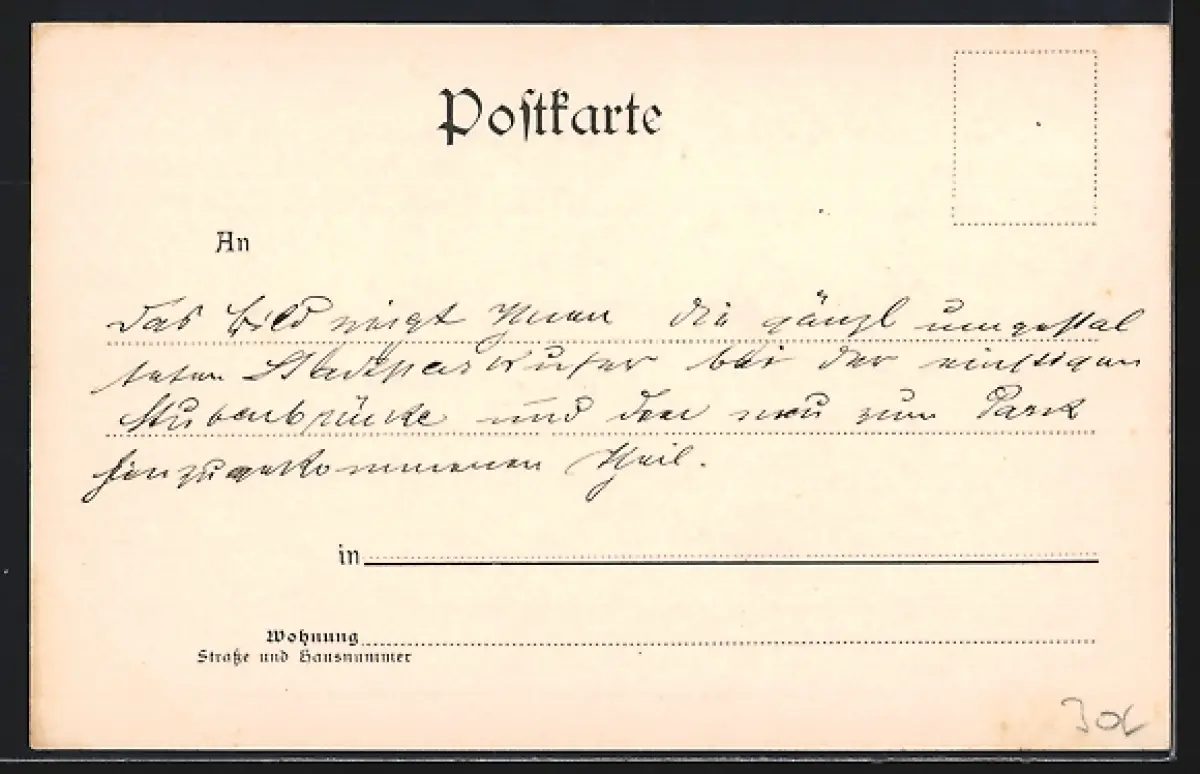 Postkarte
An
Das Bild zeigt Ihnen die gänzl umgestal
teten Stadtparkufer bei der einstigen
Stubenbrücke und den neu zum Park
hinzugekommenen Theil.
in
Wohnung
Straße und Hausnummer